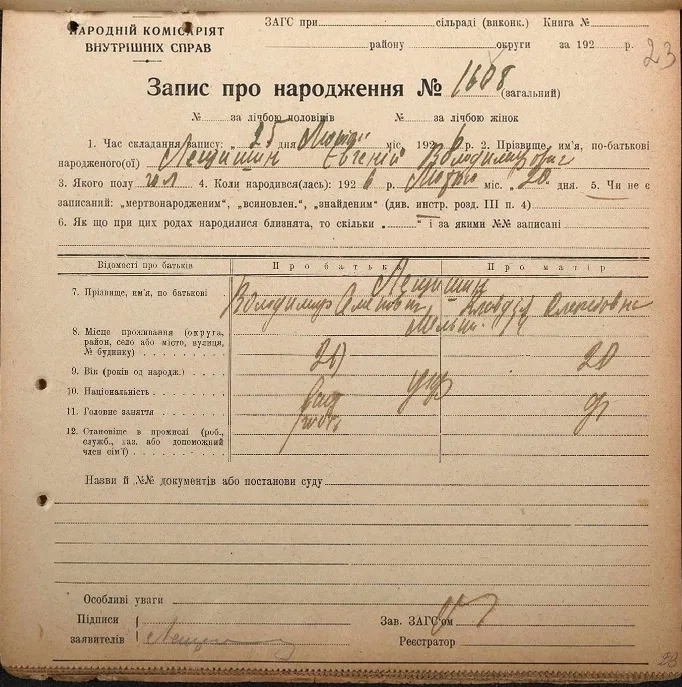 НАРОДНІЙ КОМІСАРІЯТ
ВНУТРІШНІХ СПРАВ
ЗАГС при сільраді (виконк.) Книга №
району округи за 192 р. 23
Запис про народження № 1608 (загальний)
№ за лічбою чоловіків № за лічбою жінок
1. Час складання запису: „ 25 дня міс. 192 6 р. 2. Прізвище, ім'я, по-батькові
народженого(ої) Лещишин Євгеній Володимирович
3. Якого полу чол 4. Коли народився(лась): 192 6 р. Лютого міс. „ 20 " дня. 5. Чи не є
записаний: „мертвонародженим", „всиновлен.", „знайденим" (див. инстр. розд. III п. 4)
6. Як що при цих родах народилися близнята, то скільки „ " і за якими №№ записані
Відомості про батьків Про батька Про матір
7. Прізвище, ім'я, по батькові Лещишин
Володимир
8. Місце проживання (округа,
район, село або місто, вулиця,
№ будинку)
9. Вік (років од народж.) 20
10. Національність укр
11. Головне заняття
12. Становіще в промислі (роб.,
служб., хаз. або допоможний
член сім'ї)
Назви й №№ документів або постанови суду
Особливі уваги
Підписи
заявителів
Зав. ЗАГС'ом
Реєстратор
23